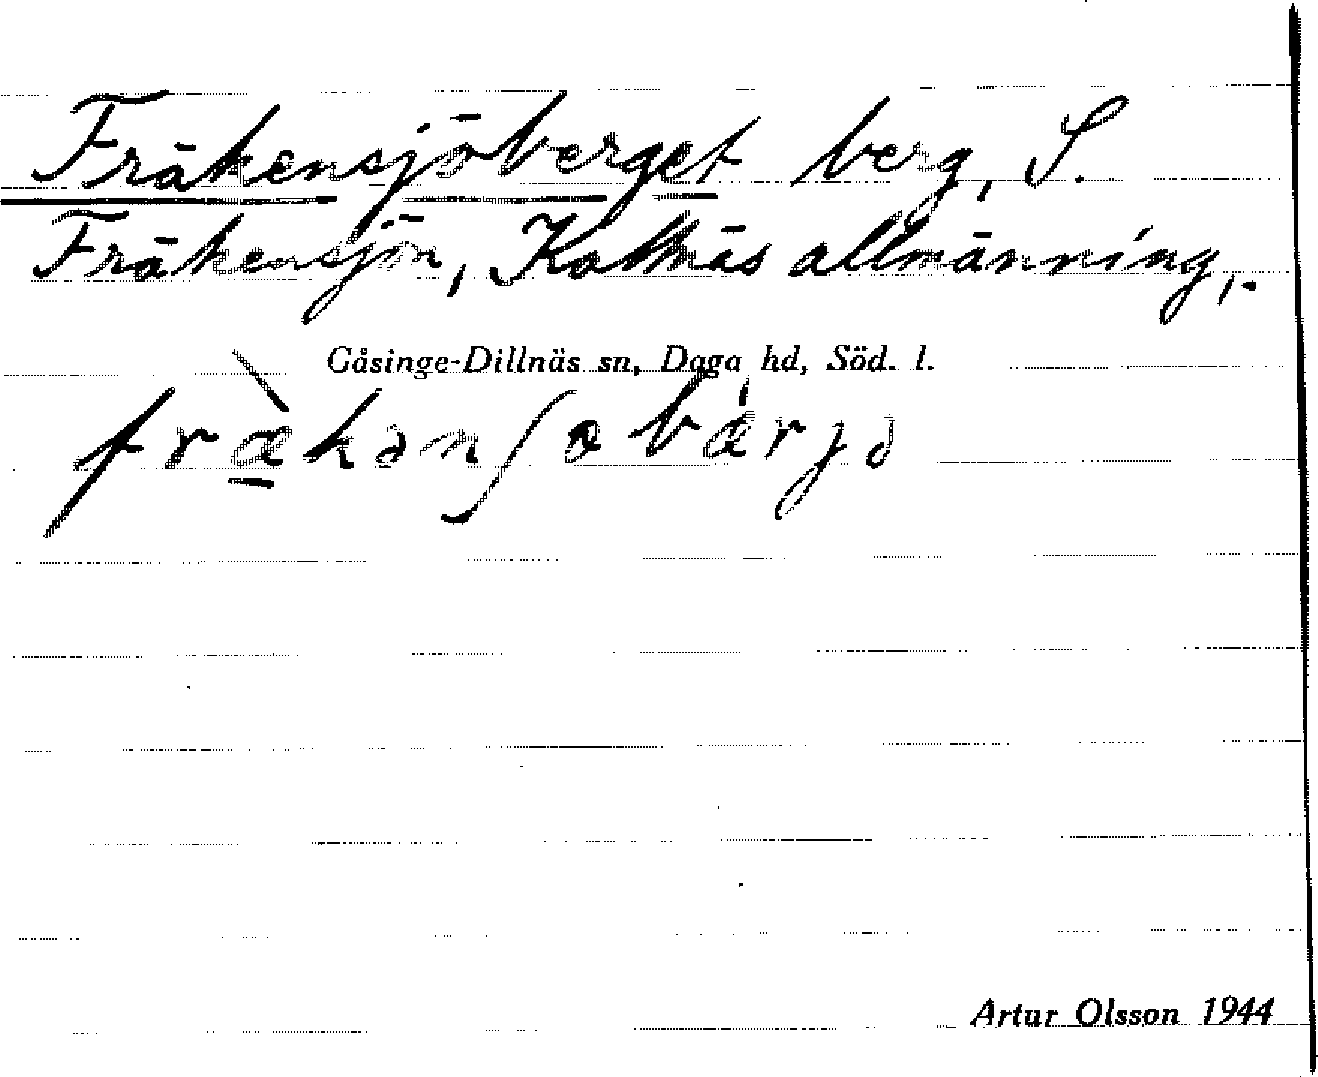 Fräkensjöberget berg, S.
Fräkensjön, Kattnäs allmänning,.
Gåsinge-Dillnäs sn, Daga hd, Söd. l.
fræ̀kənʃəbærjə
Artur Olsson 1944